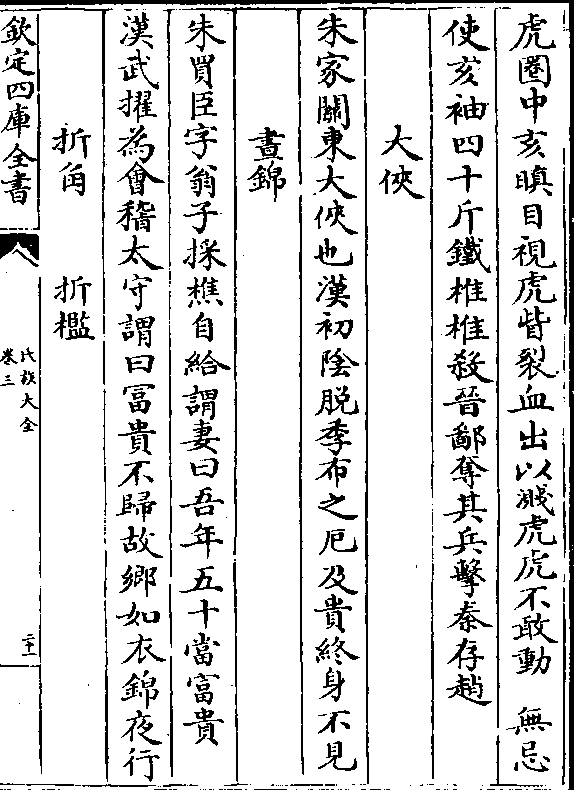 虎圈中亥瞋目視虎眥裂血出以濺虎虎不敢動　無忌
使亥袖四十斤鐵椎椎殺晉鄙奪其兵擊秦存趙
大俠
朱家關東大俠也漢初陰脱季布之厄及貴終身不見
晝錦
朱買臣字翁子採樵自給謂妻曰吾年五十當富貴
漢武擢為會稽太守謂曰冨貴不歸故鄉如衣錦夜行
折角　折檻
欽定四庫全書
氏族大全
卷三
二十一